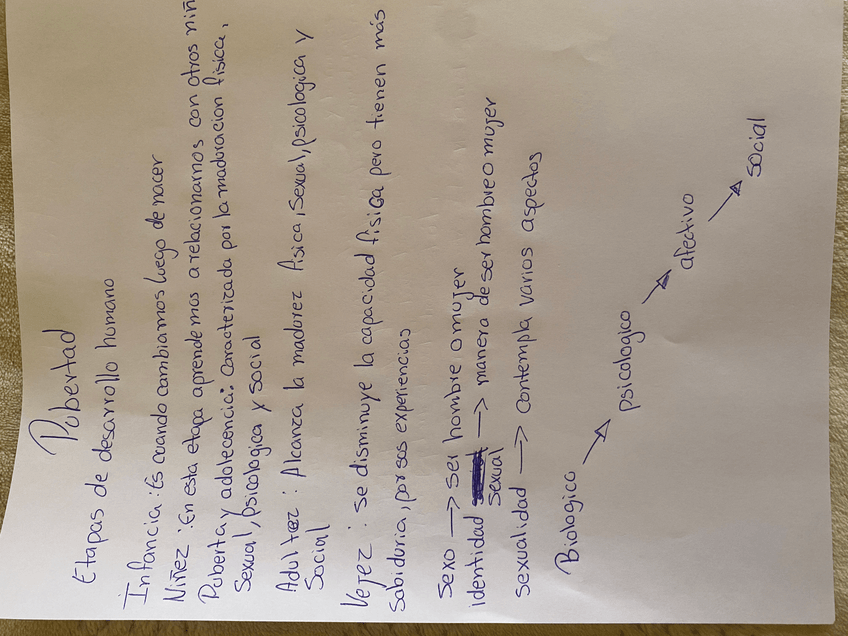 Pubertad
Etapas de desarrollo humano
Infancia: Es cuando cambiamos luego de nacer
Niñez: En esta etapa aprendemos a relacionarnos con otros niñ
Puberta y adolecencia: Caracterizada por la maduracion fisica,
Sexual, psicologica y social
Adultez: Alcanza la madurez fisica, Sexual, psicologica y
Social
Vejez: se disminuye la capacidad fisica pero tienen más
Sabiduria, por sus experiencias
Sexo → ser hombre o mujer
identidad sexual → manera de ser hombre o mujer
sexualidad → contempla varios aspectos
Biologico → psicologico → afectivo → social